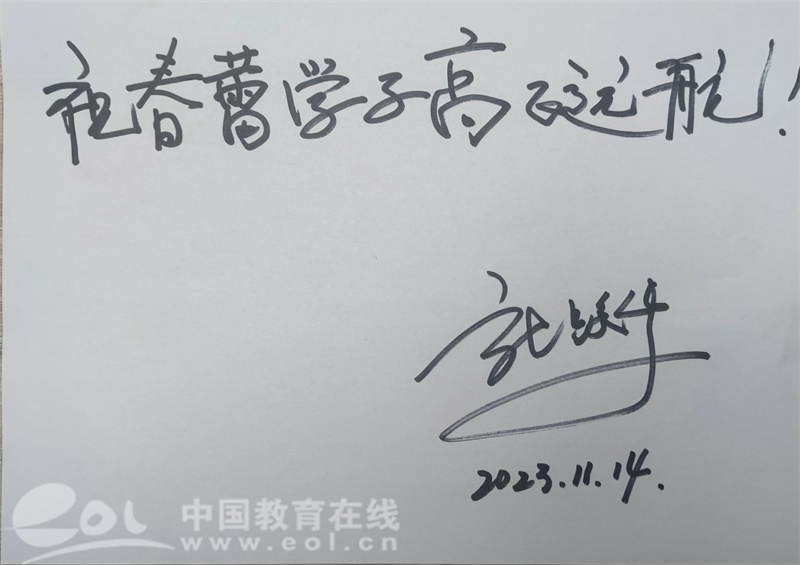 祝春蕾学子高飞远航！
2023.11.14.
eol 中国教育在线
www.eol.cn